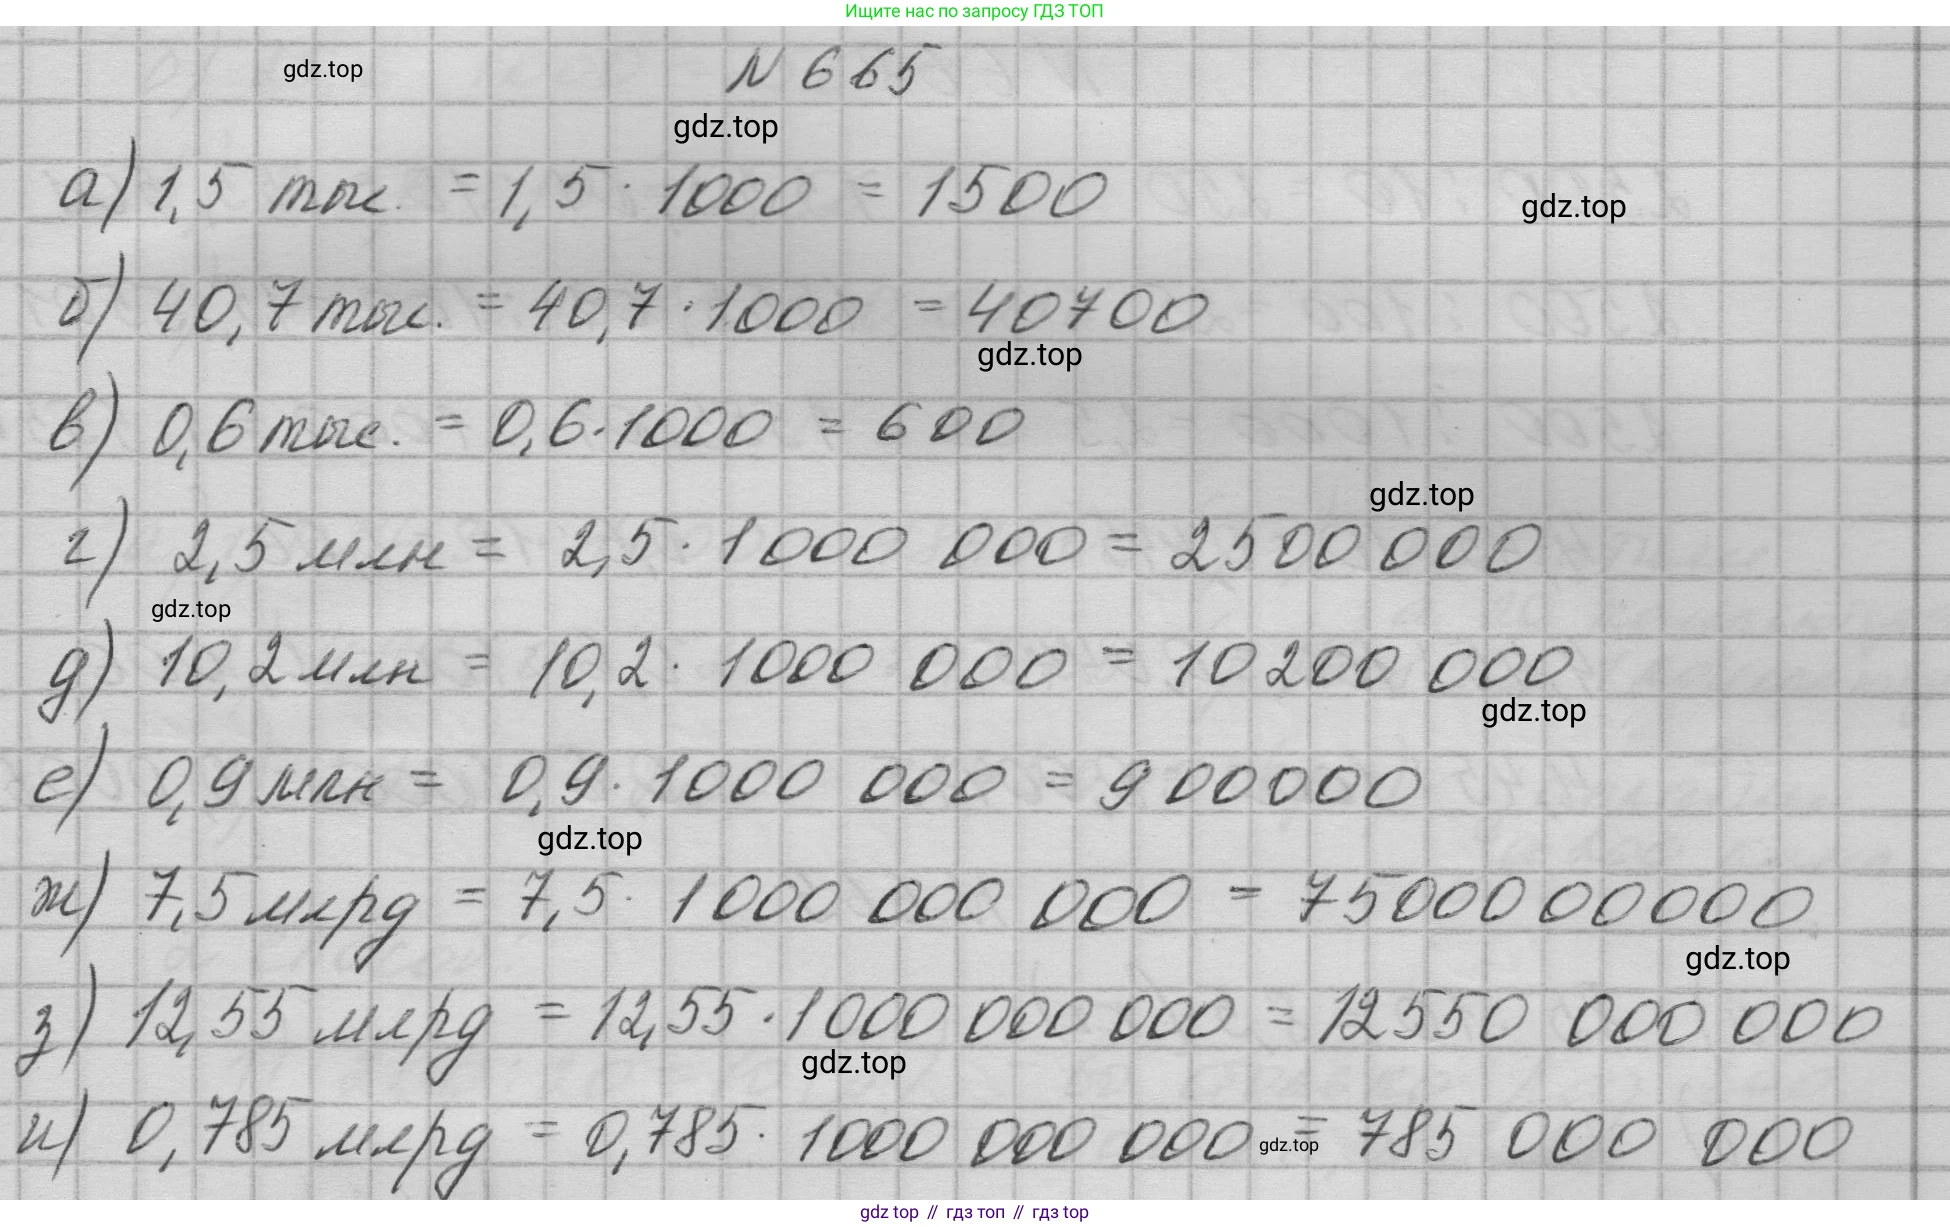 Ищите нас по запросу ГДЗ ТОП
gdz.top
N 665
gdz.top
а) 1,5 тыс. = 1,5 · 1000 = 1500
gdz.top
б) 40,7 тыс. = 40,7 · 1000 = 40700
gdz.top
в) 0,6 тыс. = 0,6 · 1000 = 600
gdz.top
г) 2,5 млн = 2,5 · 1000 000 = 2500 000
gdz.top
д) 10,2 млн = 10,2 · 1000 000 = 10200 000
gdz.top
е) 0,9 млн = 0,9 · 1000 000 = 900000
gdz.top
ж) 7,5 млрд = 7,5 · 1000 000 000 = 7500000000
gdz.top
з) 12,55 млрд = 12,55 · 1000 000 000 = 12550 000 000
gdz.top
и) 0,785 млрд = 0,785 · 1000 000 000 = 785 000 000
gdz.top
gdz top // гдз топ // гдз top